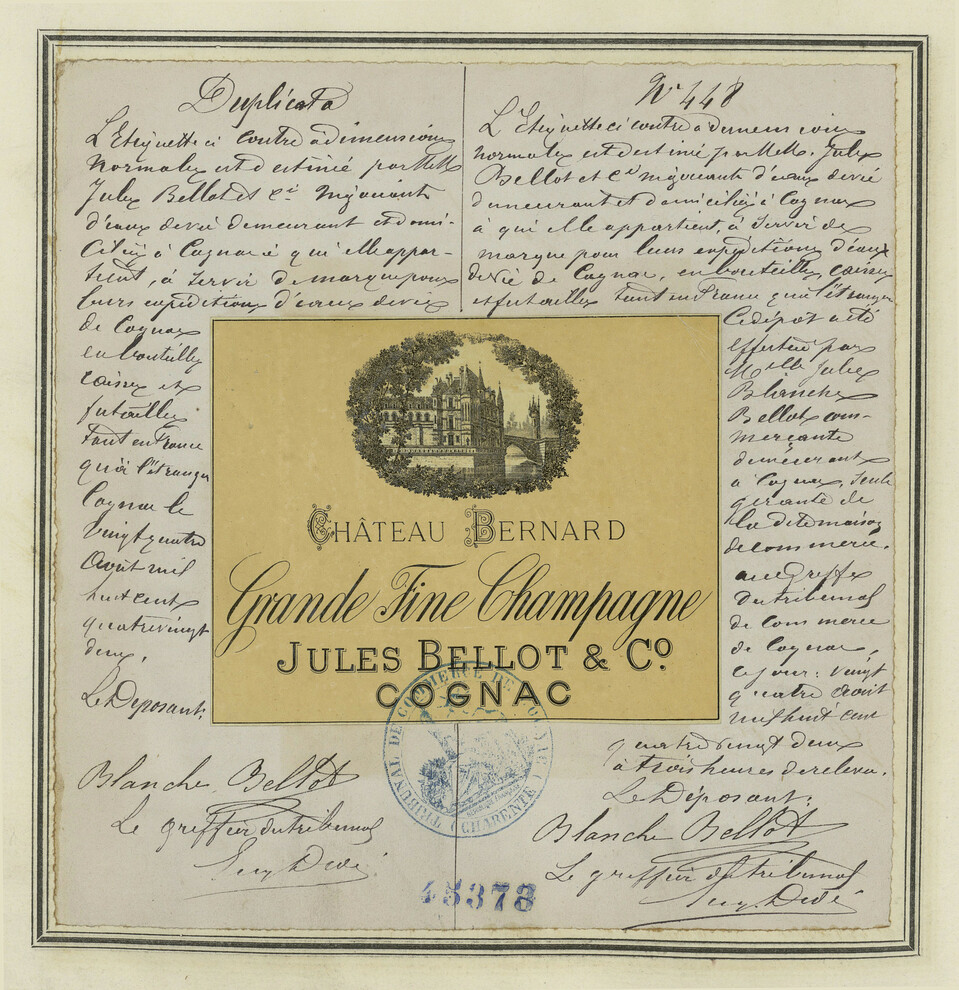 Duplicata
L'Etiquette ci contre à dimensions
normales est destinée par MM
Jules Bellot et Cie Négociants
d'eaux de vie demeurant et domi-
ciliés à Cognac à qui elle appar-
tient, à servir de marque pour
leurs expéditions d'eaux de vie
de Cognac
en bouteilles
caisses et
futailles
tant en France
qu'à l'étranger
Cognac le
vingt quatre
Août mil
huit cent
quatre vingt
deux.
Le Déposant:
Blanche Bellot
Le greffier du tribunal
N° 448
L'Etiquette ci contre à dimensions
normales est destinée par MM. Jules
Bellot et Cie négociants d'eaux de vie
demeurant et domiciliés à Cognac
à qui elle appartient, à servir de
marque pour leurs expéditions d'eaux
de vie de Cognac, en bouteilles, caisses
et futailles tant en France qu'à l'étranger
Ce dépôt a été
effectué par
Melle Jules
Blanche
Bellot com-
merçante
demeurant
à Cognac, seule
gérante de
la dite maison
de commerce.
au greffe
du tribunal
de commerce
de Cognac,
ce jour: vingt
quatre Août
mil huit cent
quatre vingt deux
à trois heures de relevée.
Le Déposant:
Blanche Bellot
Le greffier du tribunal
CHÂTEAU BERNARD
Grande Fine Champagne
JULES BELLOT & Co
COGNAC
TRIBUNAL DE COMMERCE DE COGNAC
CHARENTE
45378